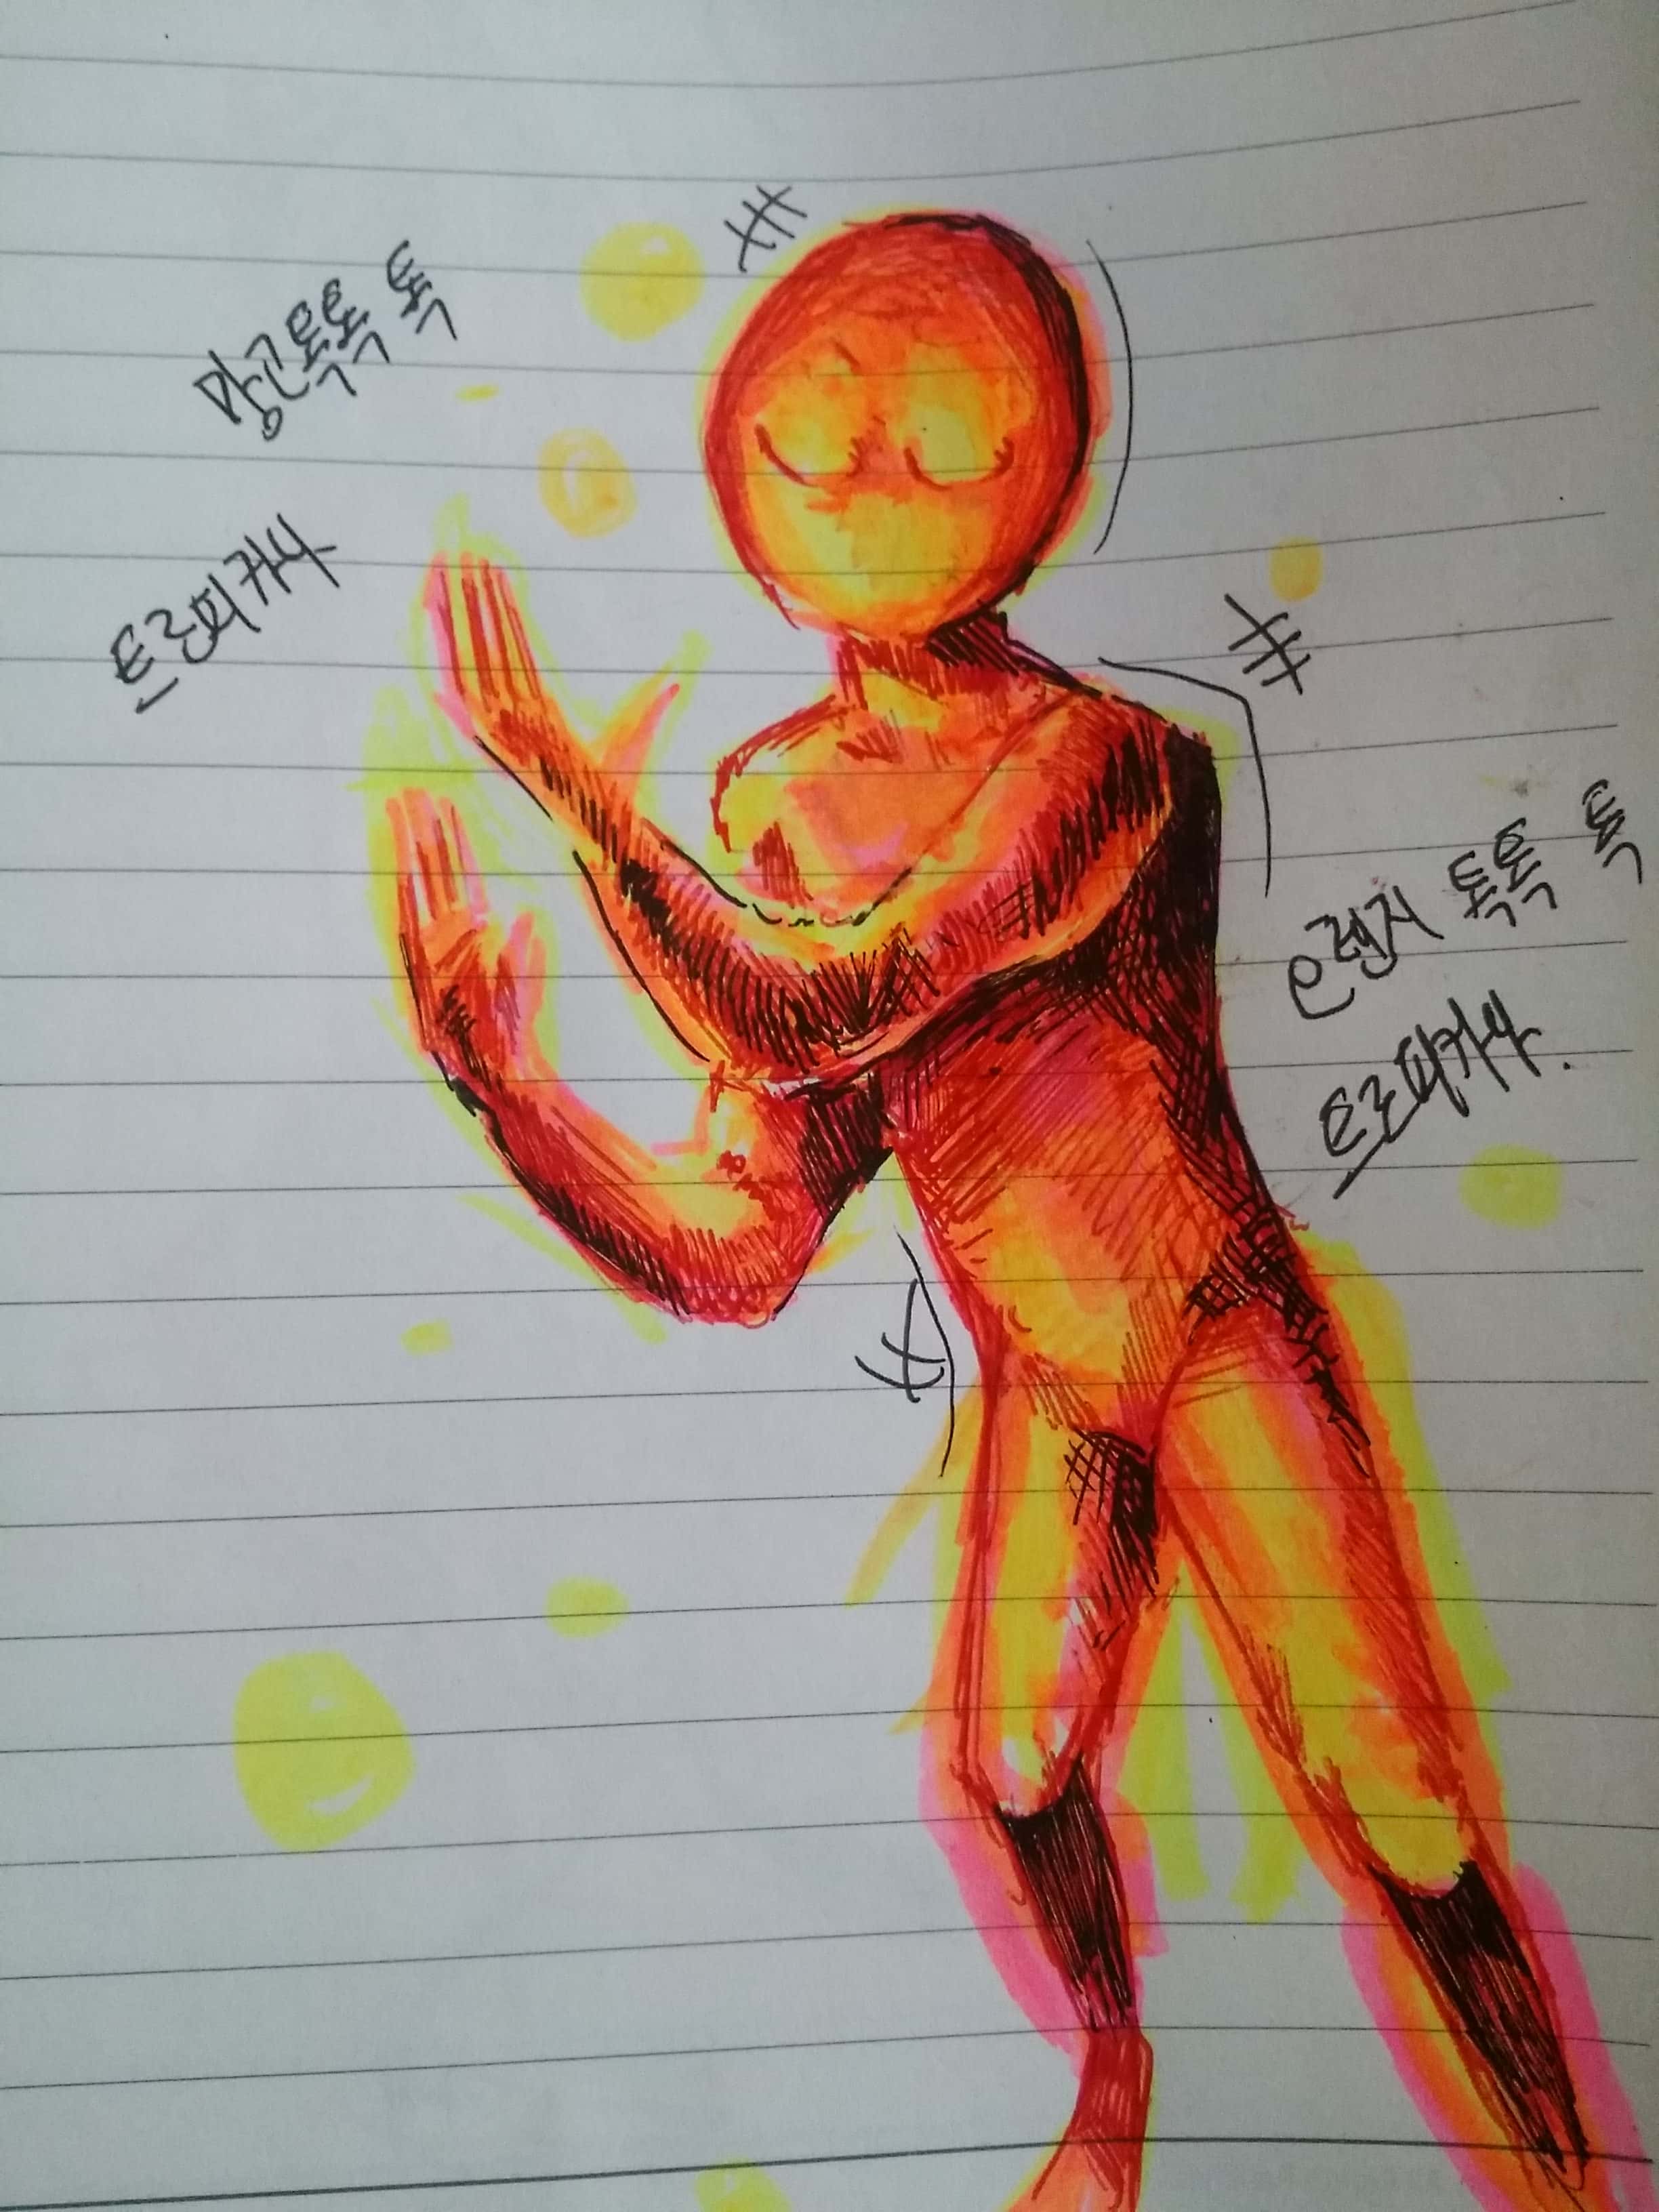 망고톡톡 톡
트로피카나
오렌지 톡톡 톡
트로피카나.